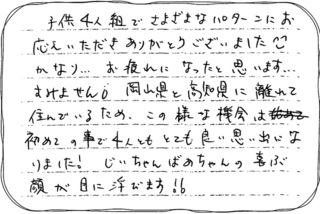 子供4人組でさまざまなパターンにお
応えいただきありがとうございました
かなり… お疲れになったと思います…
すみません 岡山県と高知県に離れて
住んでいるため、この様な機会は
初めての事で4人ともとても良い思い出にな
りました! じいちゃんばあちゃんの喜ぶ
顔が目に浮びます!!